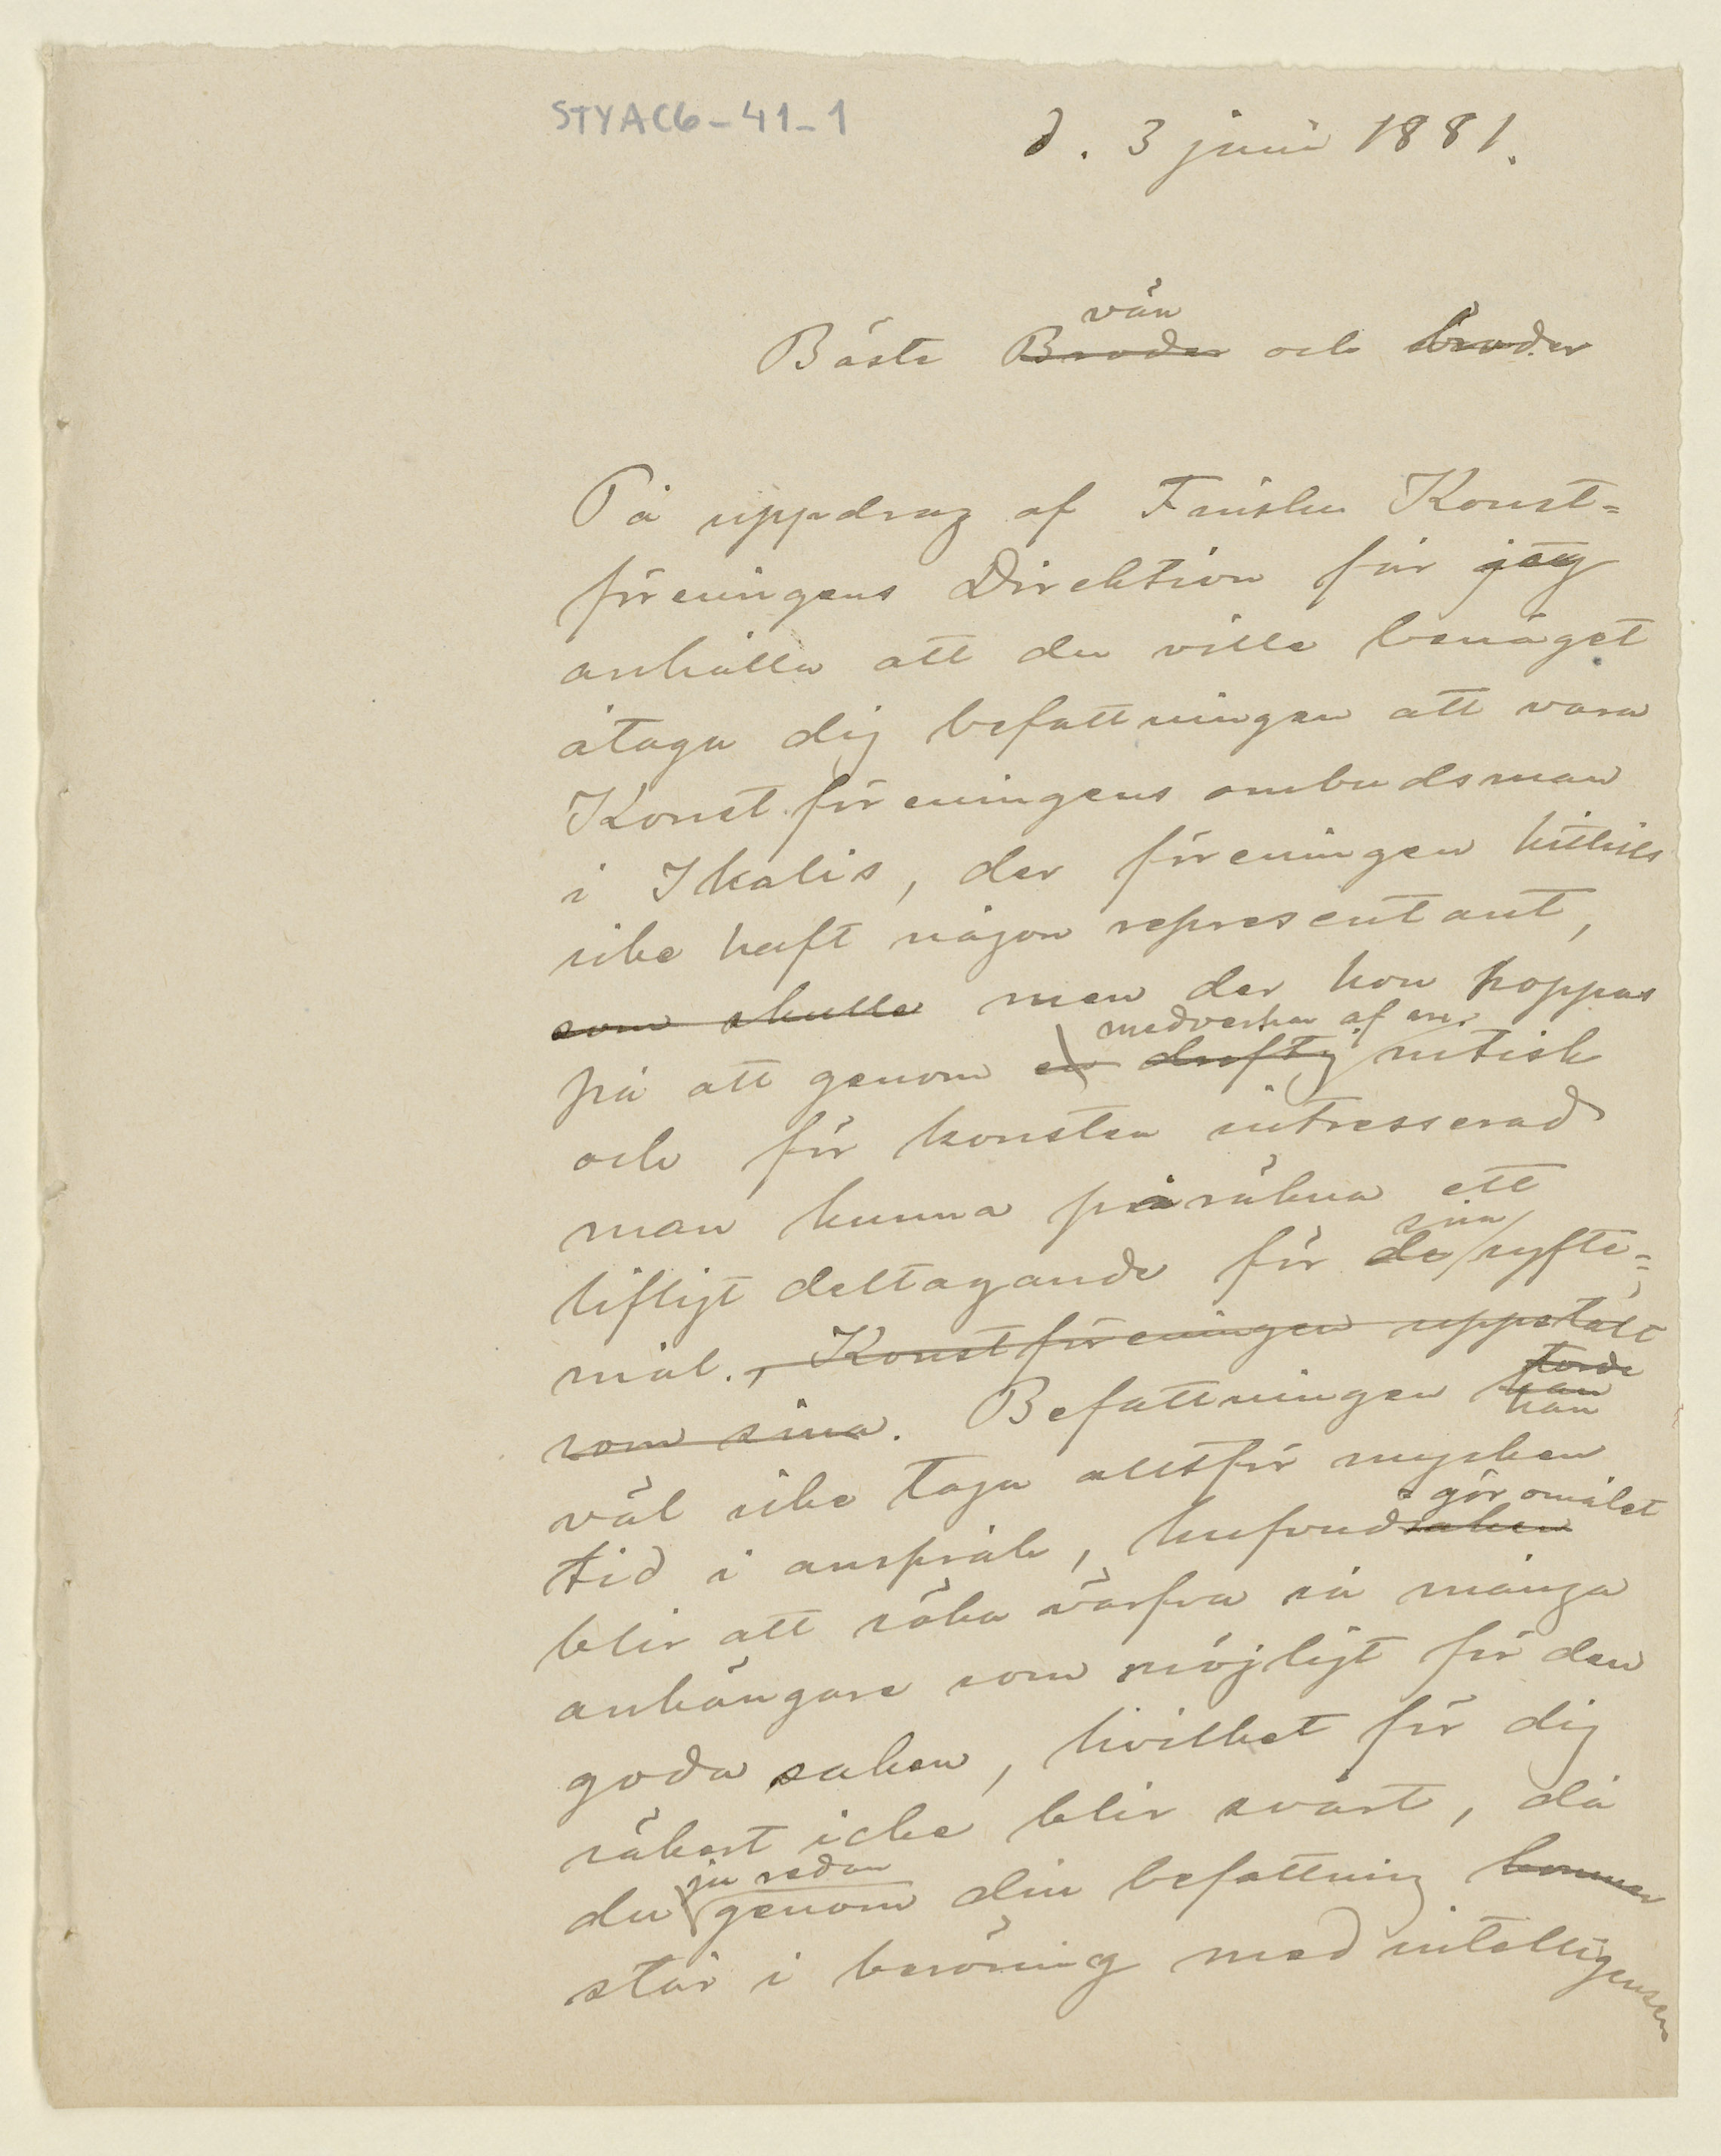 STYAC6-41-1
d. 3 juni 1881.
vän
Bäste Broder och broder
På uppdrag af Finska Konst=
föreningens Direktion får jag
anhålla att du ville benäget
åtaga dig befattningen att vara
Konstföreningens ombudsman
i Ikalis, der föreningen hittills
icke haft någon representant,
som skulle men der hon hoppas
medverkan af en
på att genom en driftig nitisk
och för konsten intresserad
man kunna påräkna ett
sina
lifligt deltagande för de syfte=
mål., Konstföreningen uppstält
torde
som sina. Befattningen kan
kan
väl icke taga alltför mycken
göromålet
tid i anspråk, hufvudsaken
blir att söka värfva så många
anhängare som möjligt för den
goda saken, hvilket för dig
säkert icke blir svårt, då
ju redan
du genom din befattning kommer
står i beröring med intelligensen